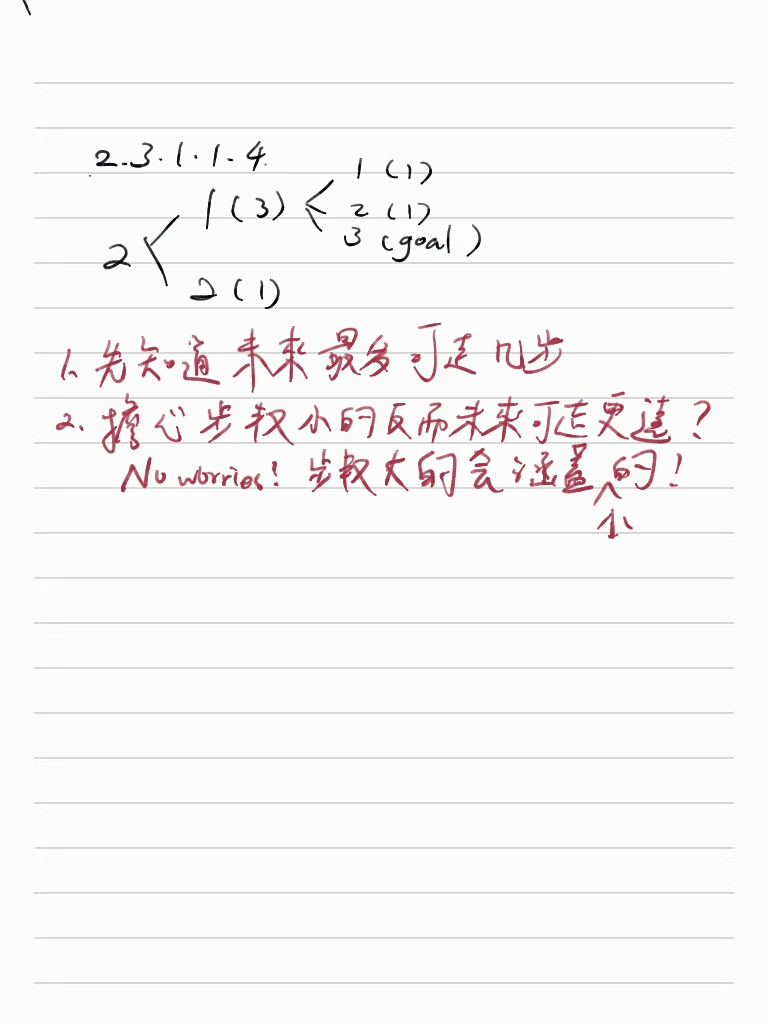 2.3.1.1.4
1 (1)
1 (3)
2 (1)
3 (goal)
2
2 (1)
1. 先知道未來最多可走几步
2. 擔心步數小的反而未來可走更遠?
No worries! 步數大的会涵蓋小的!